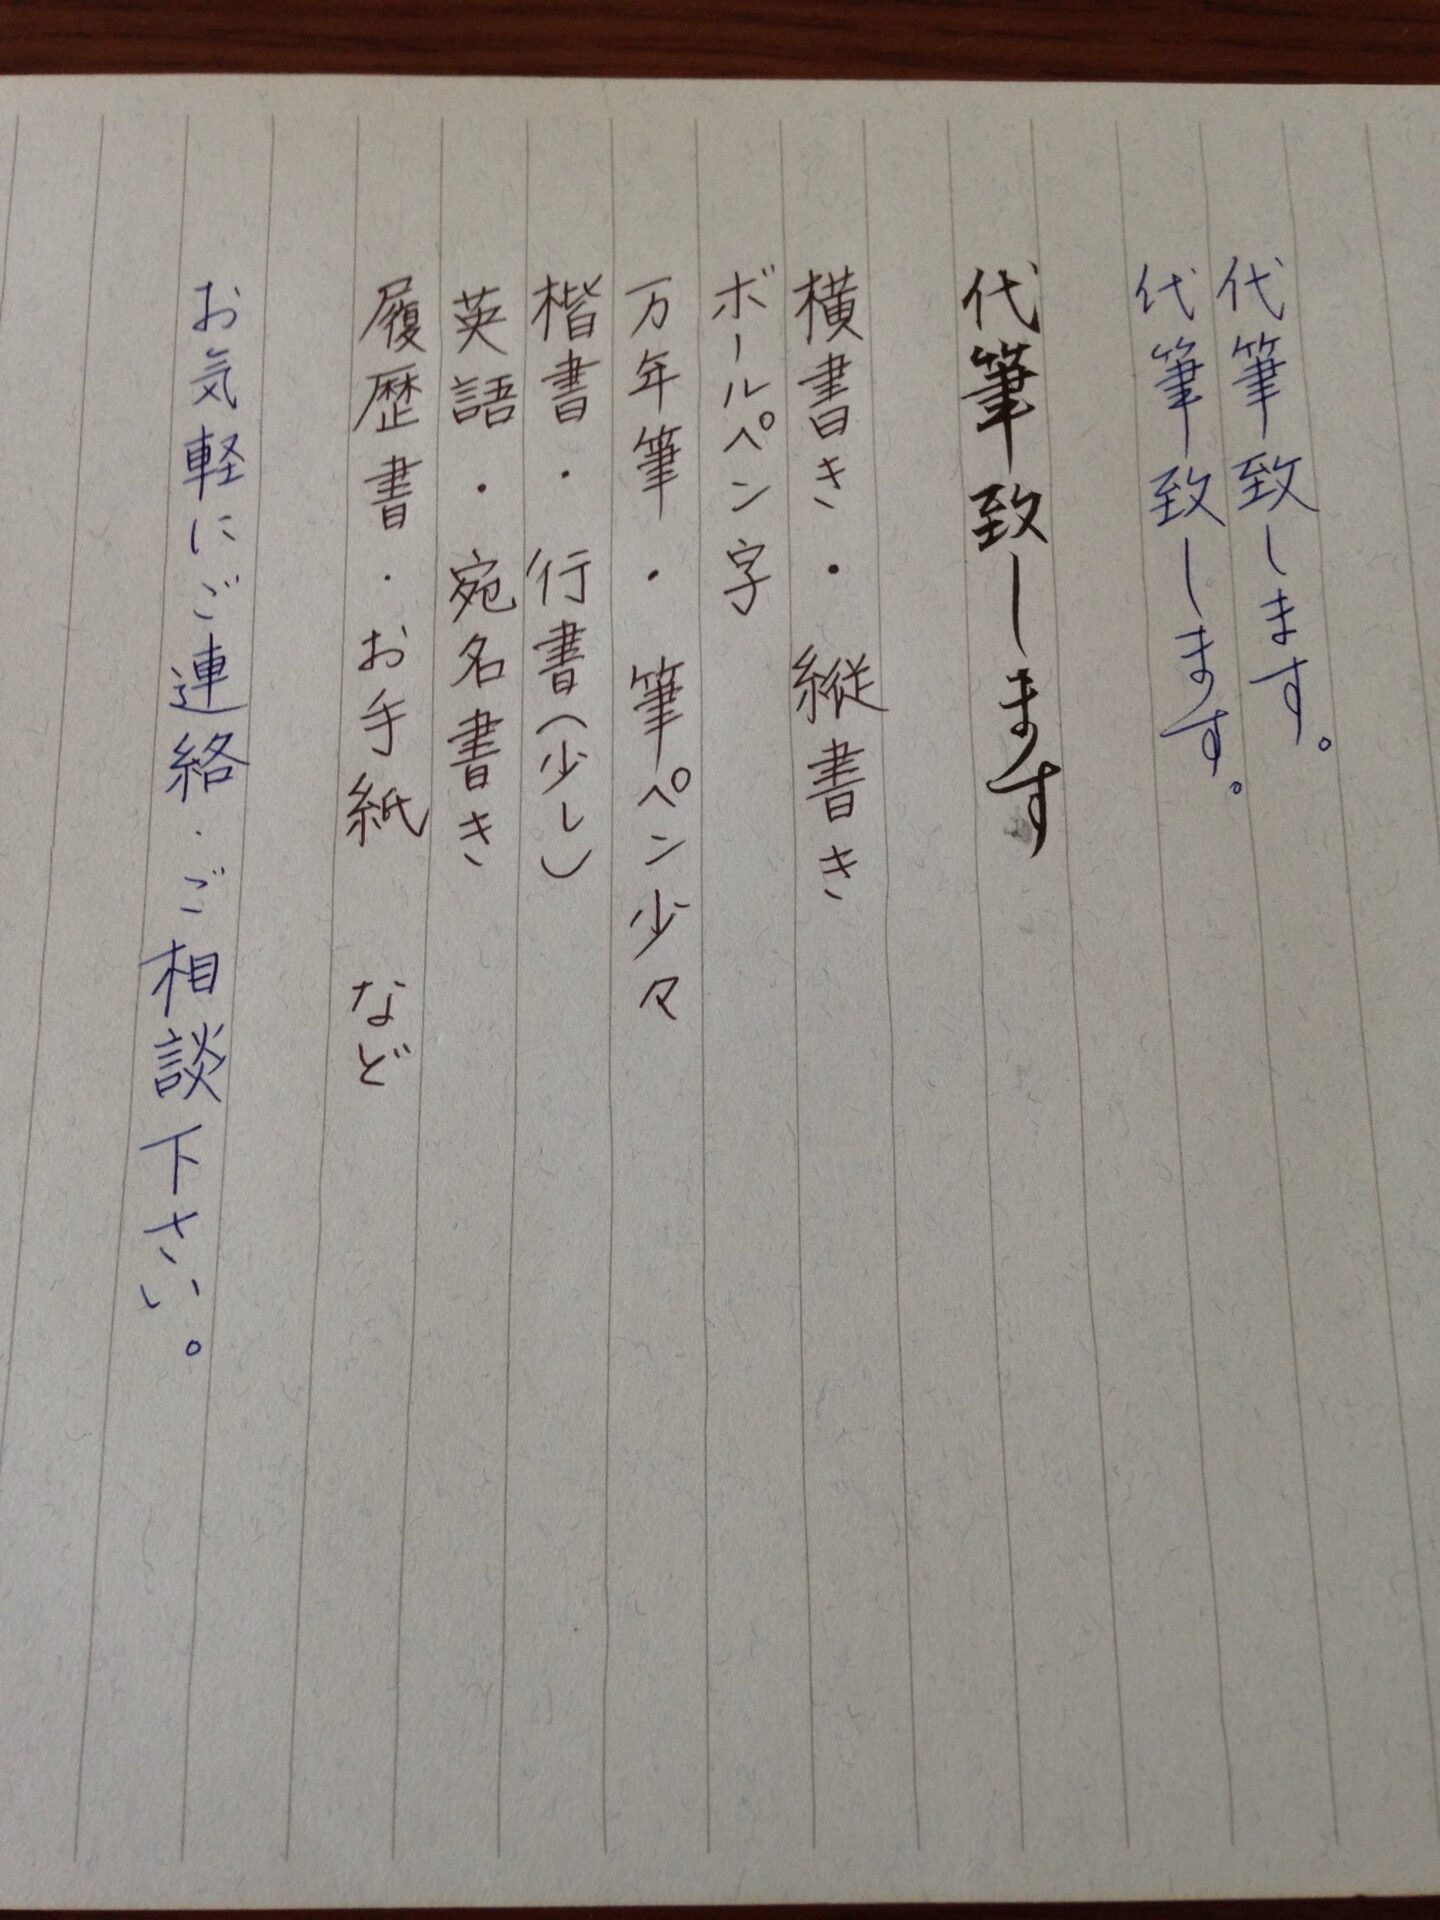 代筆致します。
代筆致します。
代筆致します
横書き・縦書き
ボールペン字
万年筆・筆ペン少々
楷書・行書(少し)
英語・宛名書き
履歴書・お手紙 など
お気軽にご連絡・ご相談下さい。